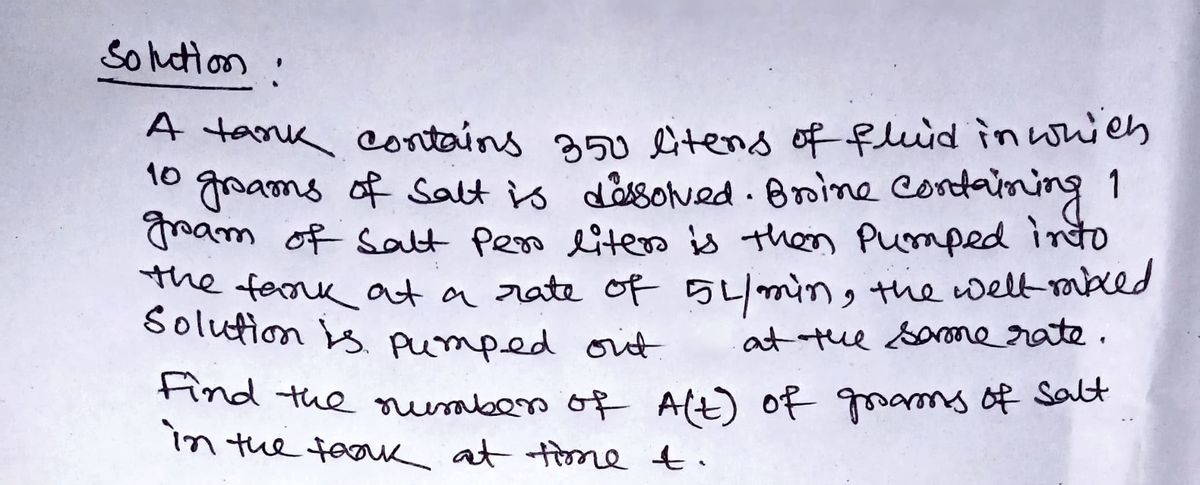 Solution :
A tank contains 350 liters of fluid in which
10 grams of salt is dissolved. Brine containing 1
gram of salt per liter is then pumped into
the tank at a rate of 5L/min, the well-mixed
solution is pumped out at the same rate.
Find the number of A(t) of grams of salt
in the tank at time t.